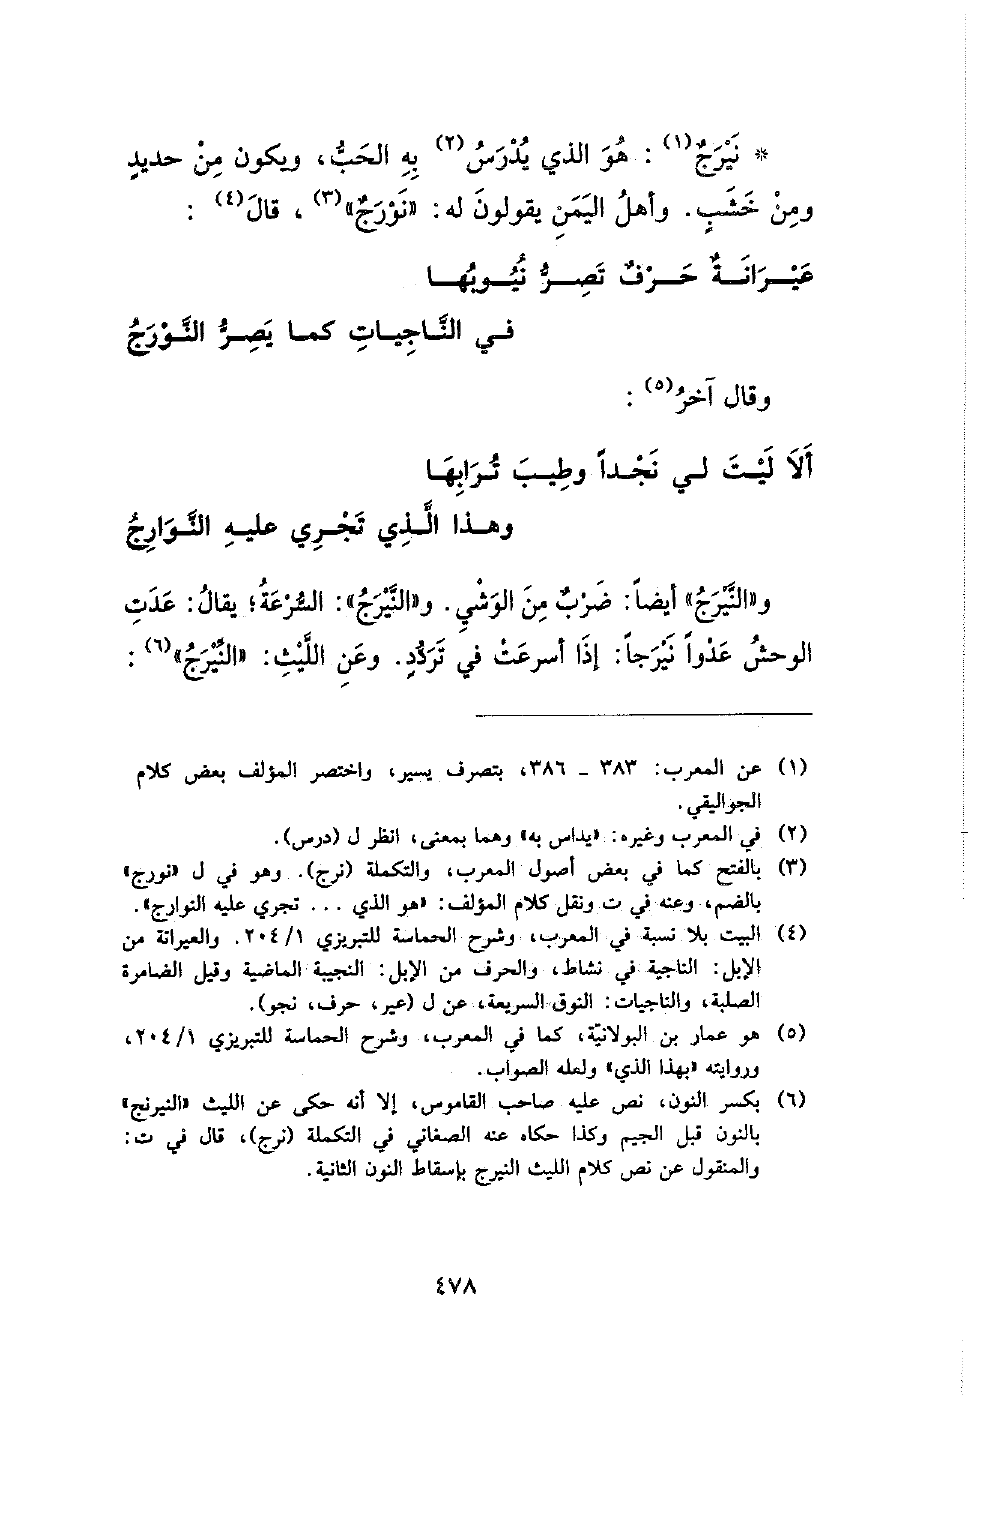 * نَيْرَجٌ(١) : هُوَ الذي يُدْرَسُ(٢) بِهِ الحَبُّ، ويكون مِنْ حديدٍ
ومِنْ خَشَبٍ. وأهلُ اليَمَنِ يقولونَ له: «نَوْرَجٌ»(٣) ، قالَ(٤) :
عَيْـرَانَـةٌ حَـرْفٌ تَصِـرُّ نُيُـوبُهـا
فـي النَّـاجِيـاتِ كمـا يَصِـرُّ النَّـوْرَجُ
وقال آخرُ(٥) :
أَلاَ لَيْـتَ لـي نَجْـداً وطِيـبَ تُـرَابِهَـا
وهـذا الَّـذِي تَجْـرِي عليـهِ النَّـوَارِجُ
و«النَّيْرَجُ» أيضاً: ضَرْبٌ مِنَ الوَشْيِ. و«النَّيْرَجُ»: السُّرْعَةُ؛ يقالُ: عَدَتِ
الوحشُ عَدْواً نَيْرَجاً: إذَا أسرعَتْ في تَرَدُّدٍ. وعَنِ اللَّيْثِ: «النِّيْرَجُ»(٦) :
(١) عن المعرب: ٣٨٣ - ٣٨٦، بتصرف يسير، واختصر المؤلف بعض كلام
الجواليقي.
(٢) في المعرب وغيره: «يداس به» وهما بمعنى، انظر ل (درس).
(٣) بالفتح كما في بعض أصول المعرب، والتكملة (نرج). وهو في ل «نورج»
بالضم، وعنه في ت ونقل كلام المؤلف: «هو الذي ... تجري عليه النوارج».
(٤) البيت بلا نسبة في المعرب، وشرح الحماسة للتبريزي ٢٠٤/١. والعيرانة من
الإبل: الناجية في نشاط، والحرف من الإبل: النجيبة الماضية وقيل الضامرة
الصلبة، والناجيات: النوق السريعة، عن ل (عير، حرف، نجو).
(٥) هو عمار بن البولانيّة، كما في المعرب، وشرح الحماسة للتبريزي ٢٠٤/١،
وروايته «بهذا الذي» ولعله الصواب.
(٦) بكسر النون، نص عليه صاحب القاموس، إلا أنه حكى عن الليث «النيرنج»
بالنون قبل الجيم وكذا حكاه عنه الصغاني في التكملة (نرج)، قال في ت:
والمنقول عن نص كلام الليث النيرج بإسقاط النون الثانية.
٤٧٨